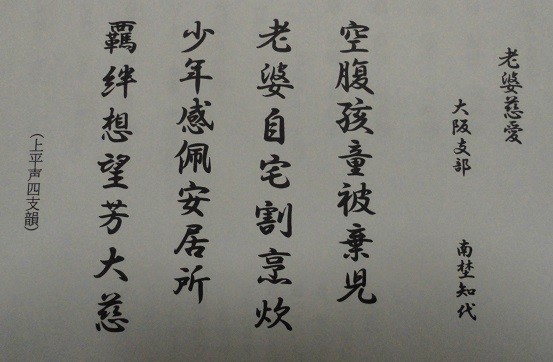 老婆慈愛
大阪支部　南埜知代
空腹孩童被棄児
老婆自宅割烹炊
少年感佩安居所
羈絆想望芳大慈
（上平声四支韻）